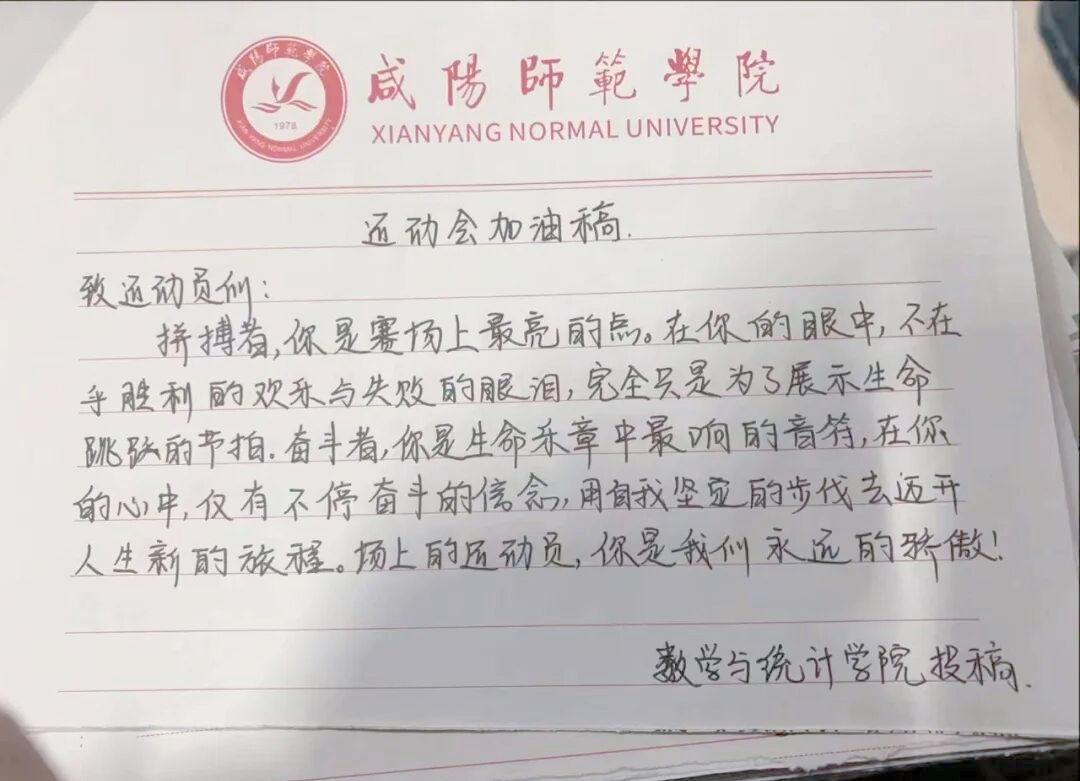 咸陽師範學院
1978
XIAN YANG NORMAL UNIVERSITY
咸陽師範學院
XIANYANG NORMAL UNIVERSITY
运动会加油稿.
致运动员们:
拼搏者,你是赛场上最亮的点。在你的眼中,不在
乎胜利的欢乐与失败的眼泪,完全只是为了展示生命
跳跃的节拍.奋斗者,你是生命乐章中最响的音符,在你
的心中,仅有不停奋斗的信念,用自我坚定的步伐去迈开
人生新的旅程。场上的运动员,你是我们永远的骄傲!
数学与统计学院投稿.